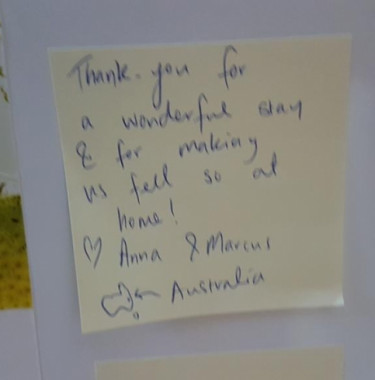 Thank-you for
a wonderful stay
& for making
us fell so at
home!
♡ Anna & Marcus
Australia